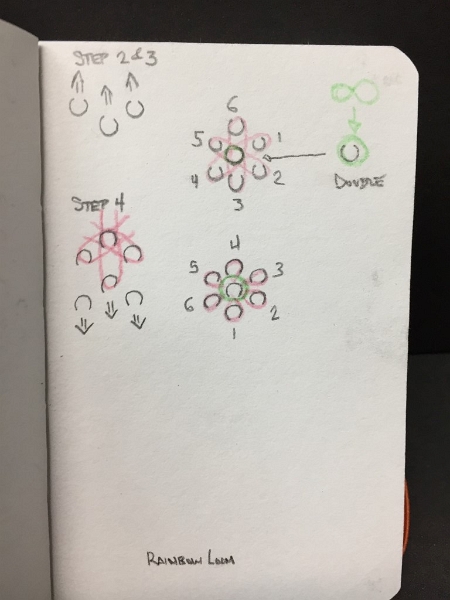 STEP 2 & 3
6
5
1
4
2
3
DOUBLE
STEP 4
4
5
3
6
2
1
RAINBOW LOOM